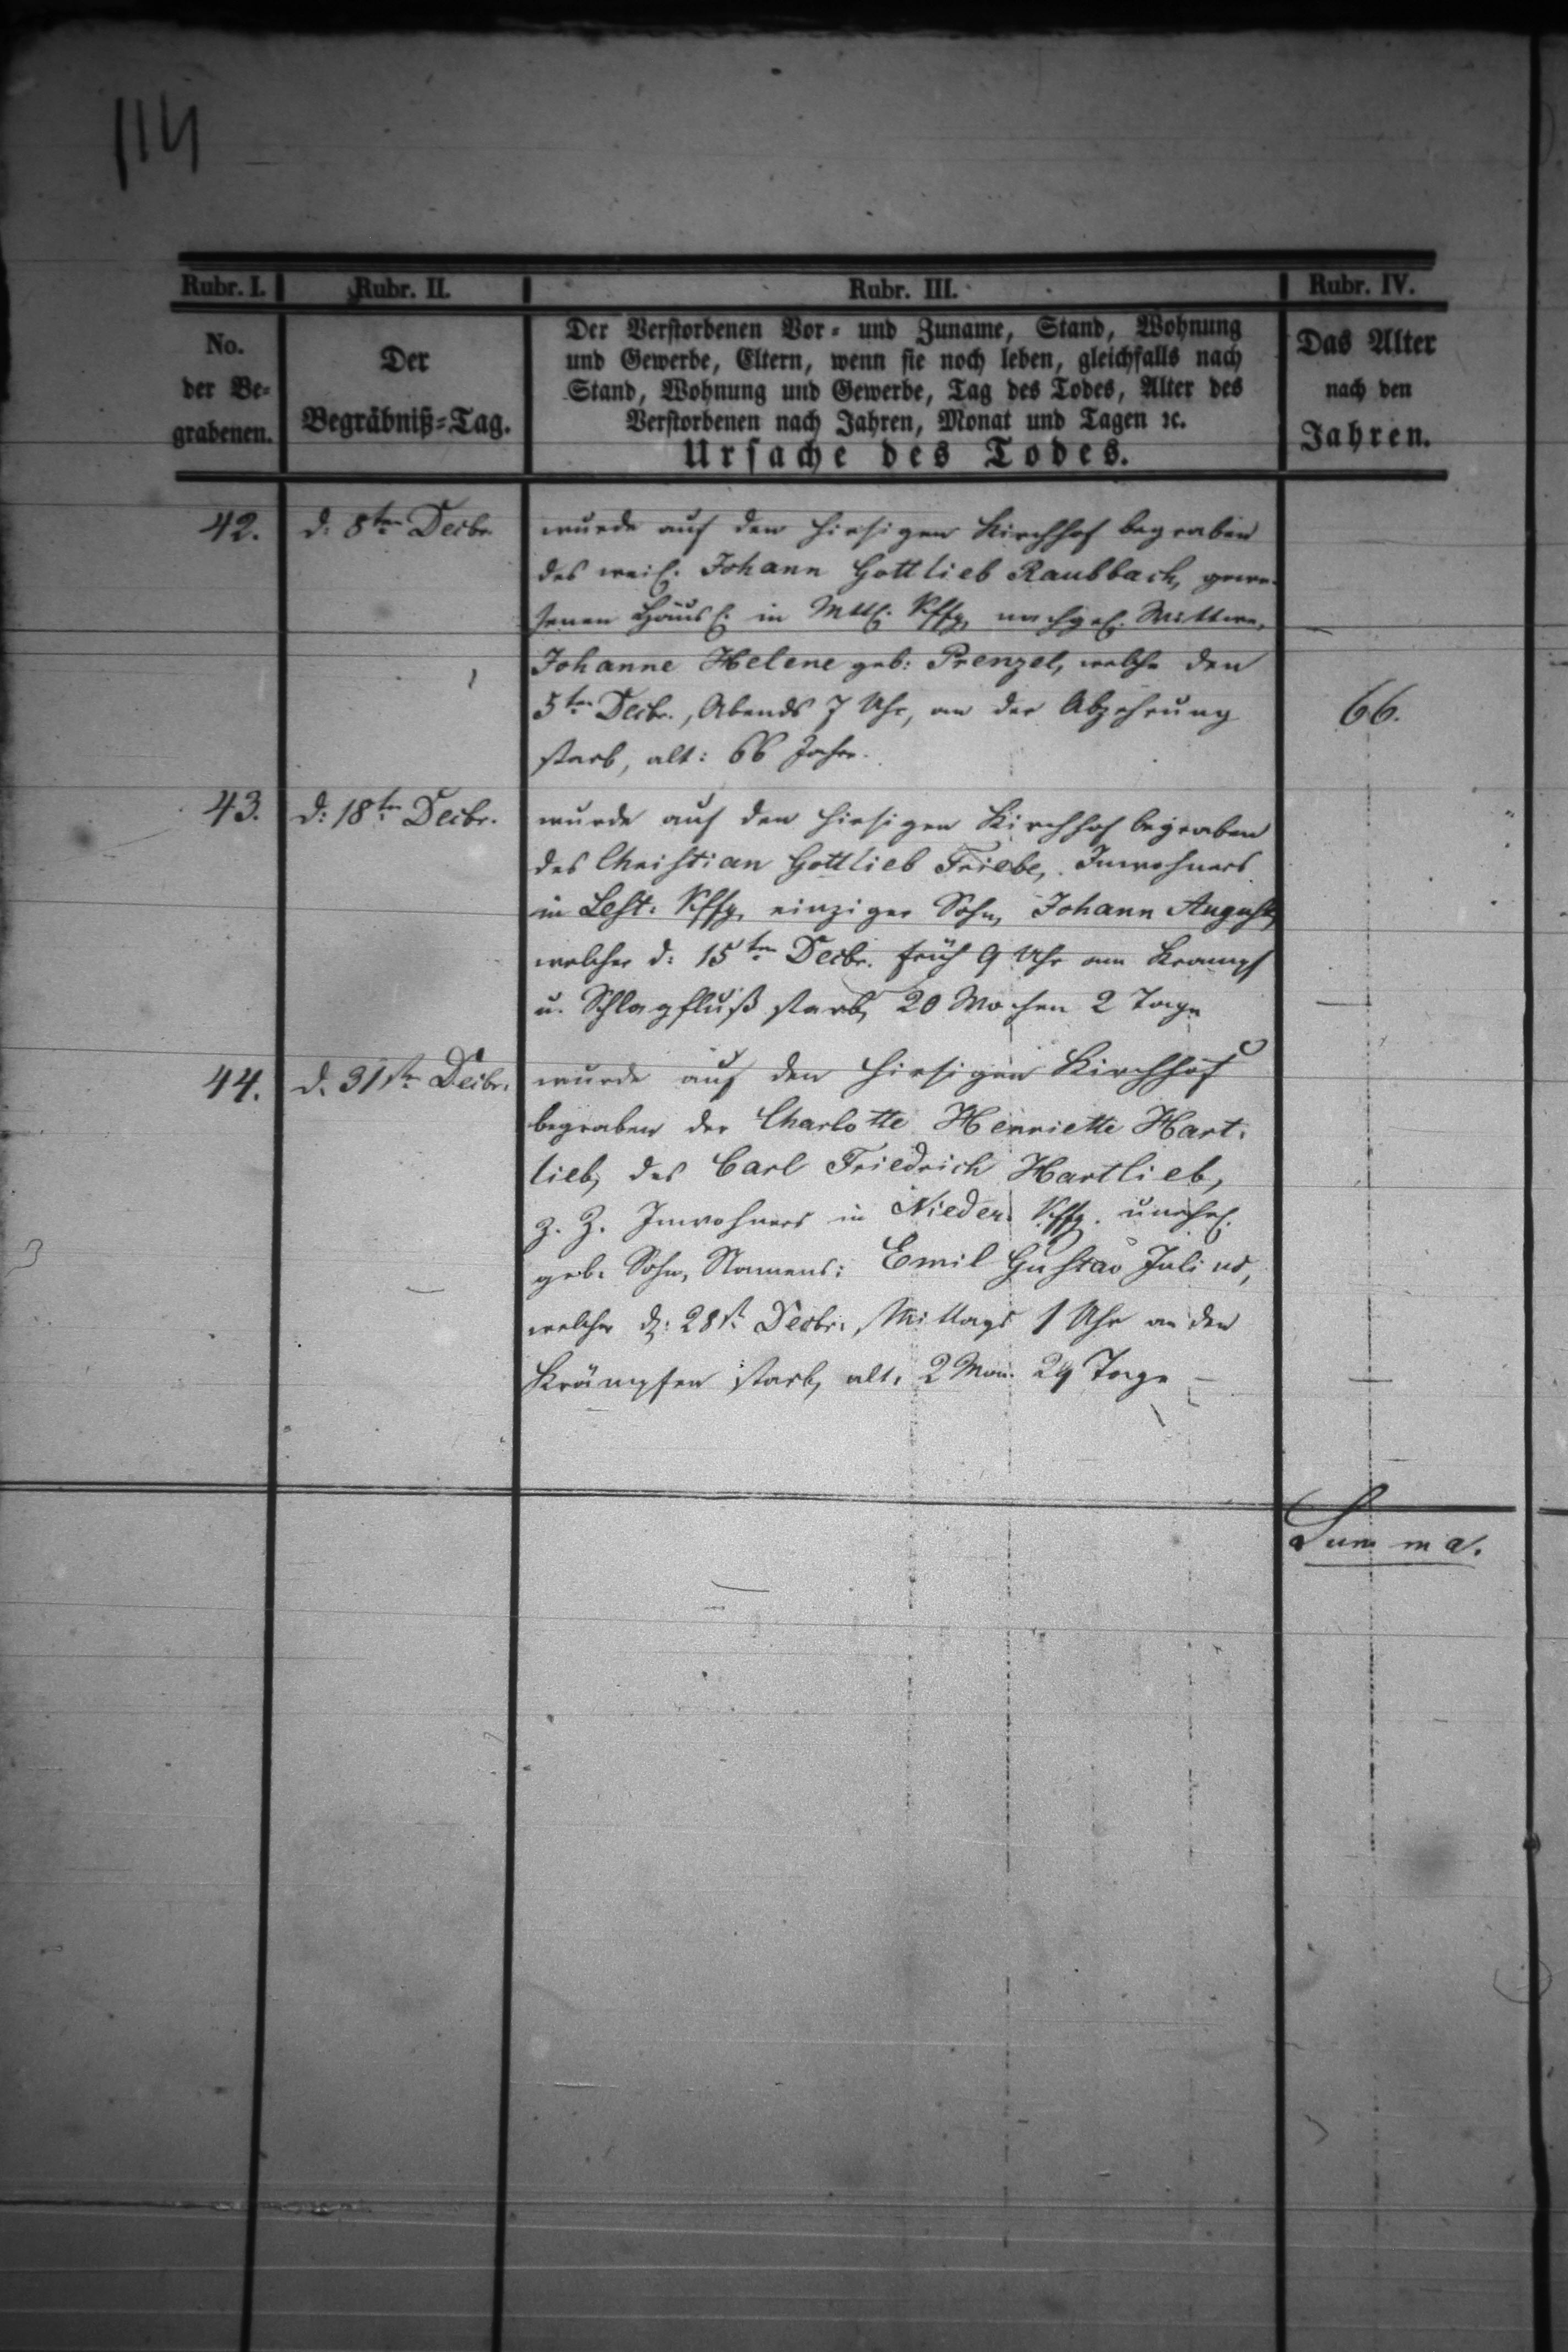 114
Rubr. I. Rubr. II. Rubr. III. Rubr. IV.
No.
der Be-
grabenen.
Der
Begräbniß-Tag.
Der Verstorbenen Vor- und Zuname, Stand, Wohnung
und Gewerbe, Eltern, wenn sie noch leben, gleichfalls nach
Stand, Wohnung und Gewerbe, Tag des Todes, Alter des
Verstorbenen nach Jahren, Monat und Tagen ꝛc.
Ursache des Todes.
Das Alter
nach den
Jahren.
42. d: 8ten Decbr. wurde auf den hiesigen Kirchhof begraben
des weil. Johann Gottlieb Raubbach, gewe-
senen Häusl. in Mttl. Kffg, nachgel. Wittwe,
Johanne Helene geb: Prenzel, welche den
5ten Decbr., Abends 7 Uhr, an der Abzehrung 66.
starb, alt: 66 Jahre.
43. d: 18ten Decbr. wurde auf den hiesigen Kirchhof begraben
des Christian Gottlieb Friebe, Inwohners
in Lest: Kffg, einziger Sohn, Johann August,
welcher d: 15ten Decbr. früh 9 Uhr am Krampf
u. Schlagfluß starb, 20 Wochen 2 Tage —
44. d. 31ten Decbr. wurde auf den hiesigen Kirchhof
begraben der Charlotte Henriette Hart-
lieb, des Carl Friedrich Hartlieb,
z. Z. Inwohners in Nieder Kffg. unehel.
geb. Sohn, Namens: Emil Gustav Julius,
welcher d: 28st. Decbr. Mittags 1 Uhr an den
Krämpfen starb, alt, 2 Mon. 29 Tage — —
Summa.